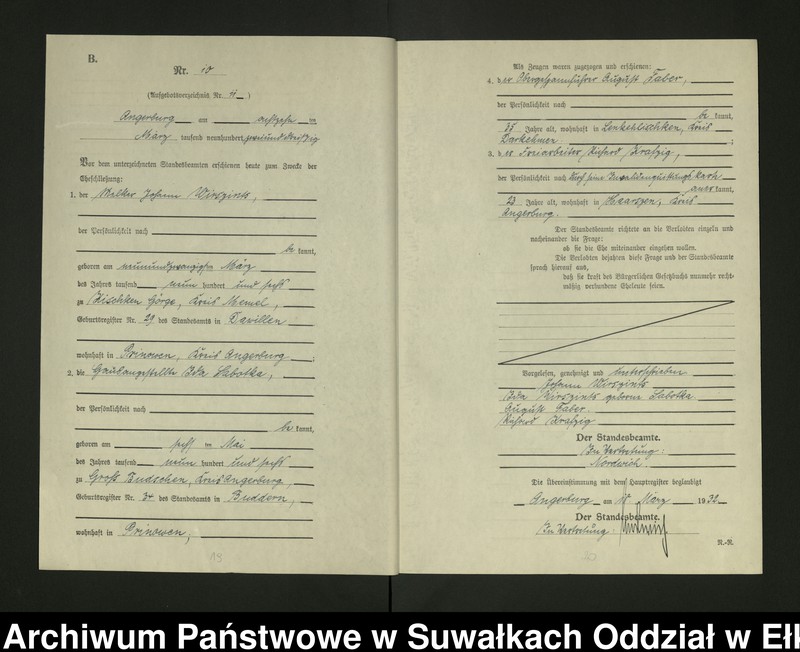 B.
Nr. 10
(Aufgebotsverzeichnis Nr. 11)
Angerburg am achtzehnten
März tausend neunhundert zweiunddreißig
Vor dem unterzeichneten Standesbeamten erschienen heute zum Zwecke der
Eheschließung:
1. der Melker Johann Wirszints,
der Persönlichkeit nach
be kannt,
geboren am neunundzwanzigsten März
des Jahres tausend neun hundert und sechs
zu Kischken Görge, Kreis Memel,
Geburtsregister Nr. 29 des Standesamts in Dawillen
wohnhaft in Grinowen, Kreis Angerburg;
2. die Ida Labotka,
der Persönlichkeit nach
be kannt,
geboren am sechsten Mai
des Jahres tausend neun hundert und sechs
zu Groß Kreis Angerburg,
Geburtsregister Nr. 34 des Standesamts in Buddern,
wohnhaft in Grinowen,
Als Zeugen waren zugezogen und erschienen:
4. der August Faber,
der Persönlichkeit nach
be kannt,
35 Jahre alt, wohnhaft in Lenkehlischken, Kreis
Darkehmen;
3. der Freiarbeiter Richard Kratzig,
der Persönlichkeit nach durch seine
aner kannt,
23 Jahre alt, wohnhaft in Haarszen, Kreis
Angerburg.
Der Standesbeamte richtete an die Verlobten einzeln und
nacheinander die Frage:
ob sie die Ehe miteinander eingehen wollen.
Die Verlobten bejahten diese Frage und der Standesbeamte
sprach hierauf aus,
daß sie kraft des Bürgerlichen Gesetzbuchs nunmehr recht-
mäßig verbundene Eheleute seien.
Vorgelesen, genehmigt und unterschrieben
Johann Wirszints
Ida Wirszints geborene Labotka
August Faber.
Richard Kratzig
Der Standesbeamte.
In Vertretung:
Nordwich
Die Übereinstimmung mit dem Hauptregister beglaubigt
Angerburg am 18. März 1932
Der Standesbeamte.
In Vertretung:
R.-R.
Archiwum Państwowe w Suwałkach Oddział w Ełk